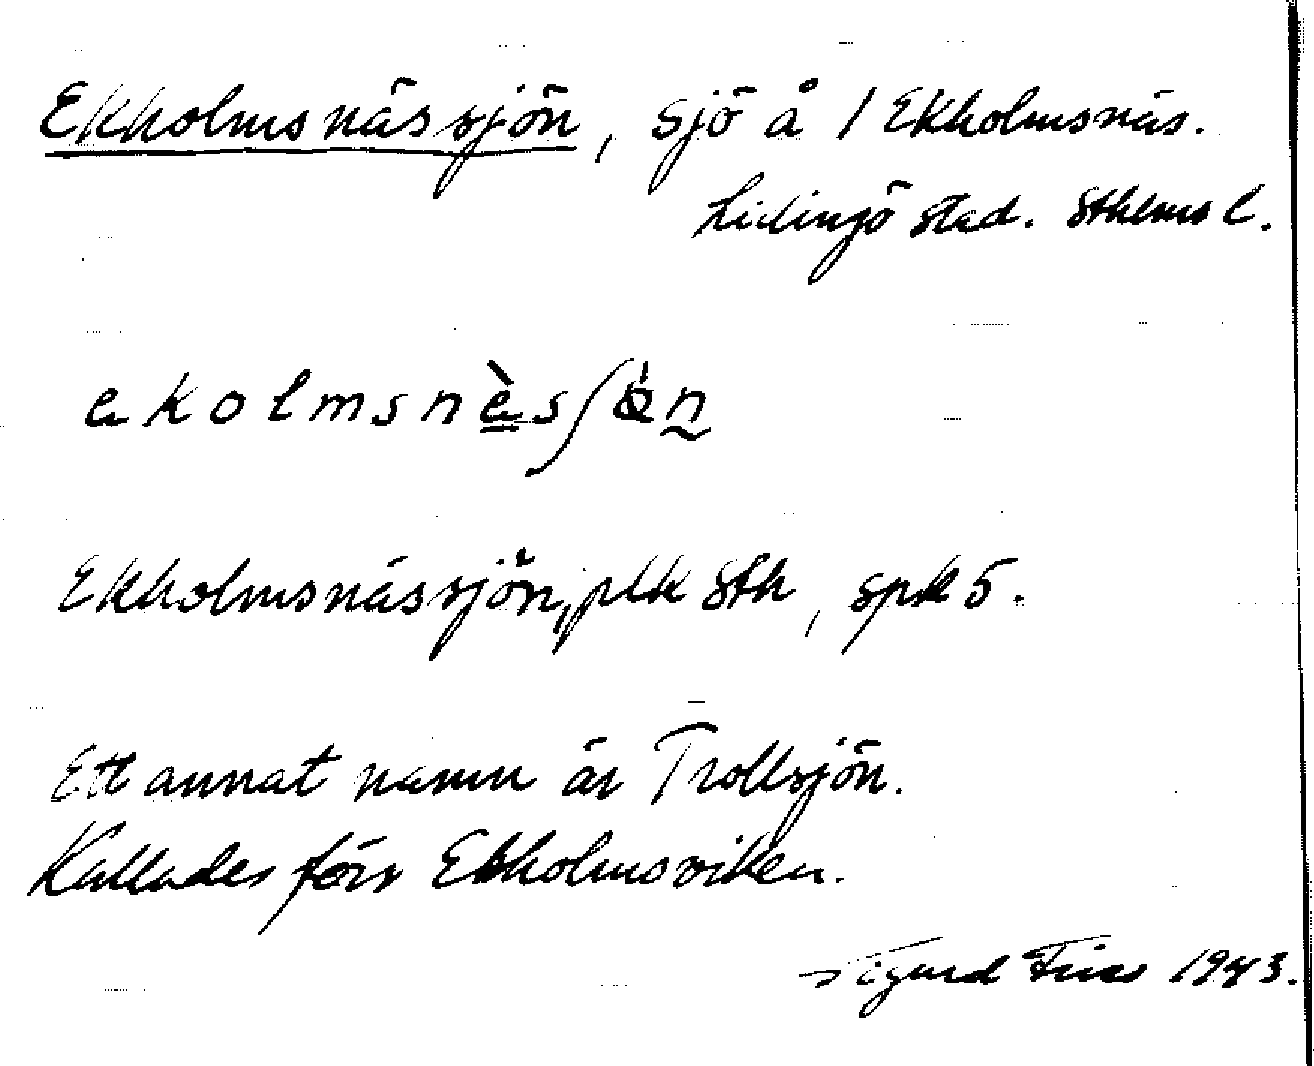 Ekholmsnässjön, sjö å 1 Ekholmsnäs.
Lidingö stad. Sthlms l.
ekolmsnὲsʃö̀n
Ekholmsnässjön, plk Sth, spk 5.
Ett annat namn är Trollsjön.
Kallades förr Ekholmsviken.
Sigurd Fries 1943.